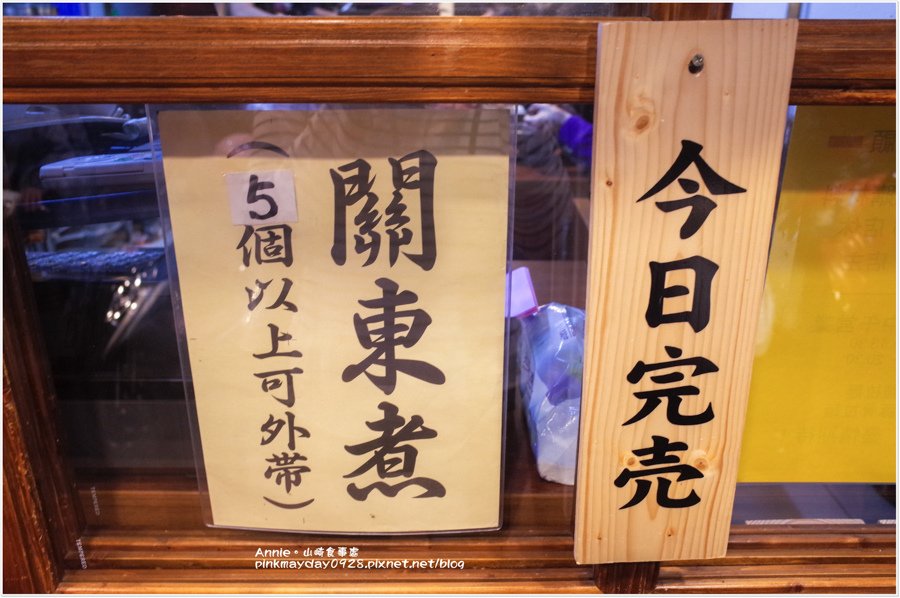 今日完売
關東煮
（5個以上可外帶）
Annie。山崎食事處
pinkmayday0928.pixnet.net/blog